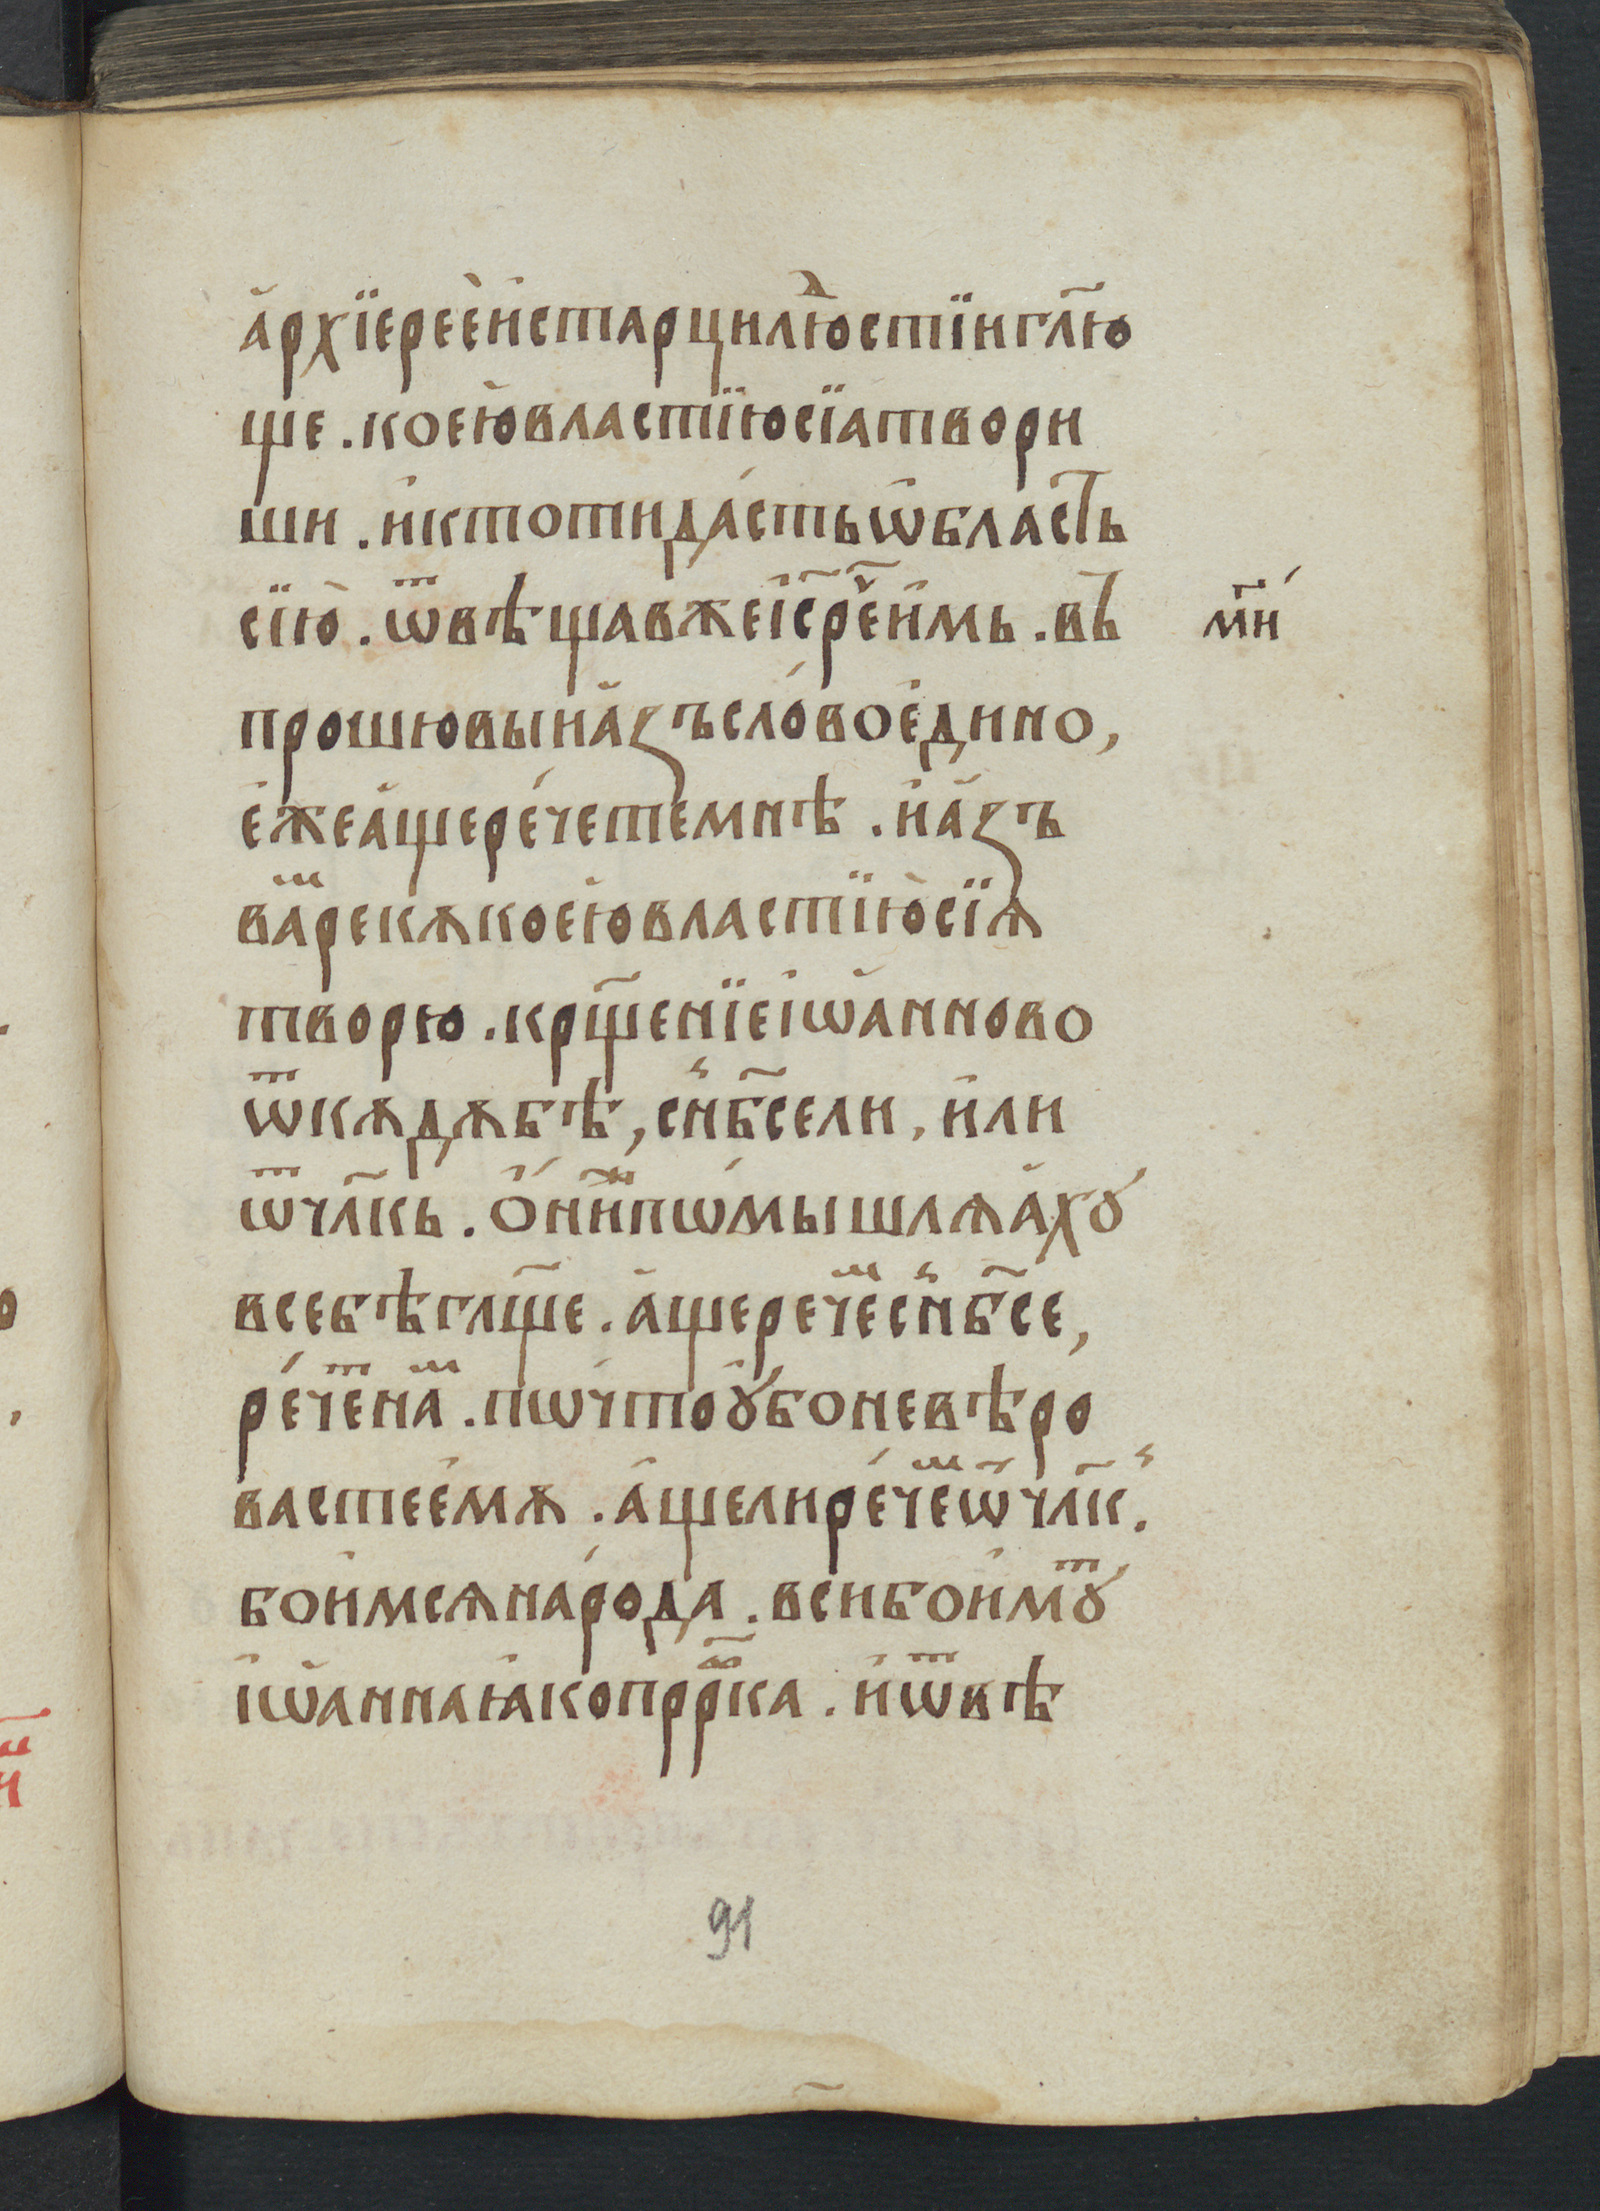 а҆рхїерееи҆старцилю̑ⷣстїиг҃лю
ще . коею҆властїюсїатвори
ши . и҆ктотида́стьѡ҆бласт̾ь
сїю̀ . ѿвѣщавжеі҆с҃рече҃и҆мь . въ
прошювыиа҆зъсло́вое҆дино,
е҆жеа҆щере́четемнѣ . и҆а҆зъ
ва́ⷨрекѫкоею҆властїю҆сїѧ
творю . кр҃щенїеіѡ҆анново
ѿкѫдѫбѣ, сн҃бсели , и҆ли
ѿчл҃кь . ѻ҆ниⷤпѡмышлѧа҆хꙋ
всебѣгл҃ще . а҆щерече́ⷨсн҃бсе,
ре́чеⷮнаⷨ . пѡчтоꙋ҆боневѣро
вастеемѫ . а҆щелире́чеⷨѿчл҃к .
бои҆мсѧнаро́да . всибои҆мⷮꙋ
іѡ҆аннаꙗ҆копррⷪ҇ка . и҆ѿвѣ
м҃и
91